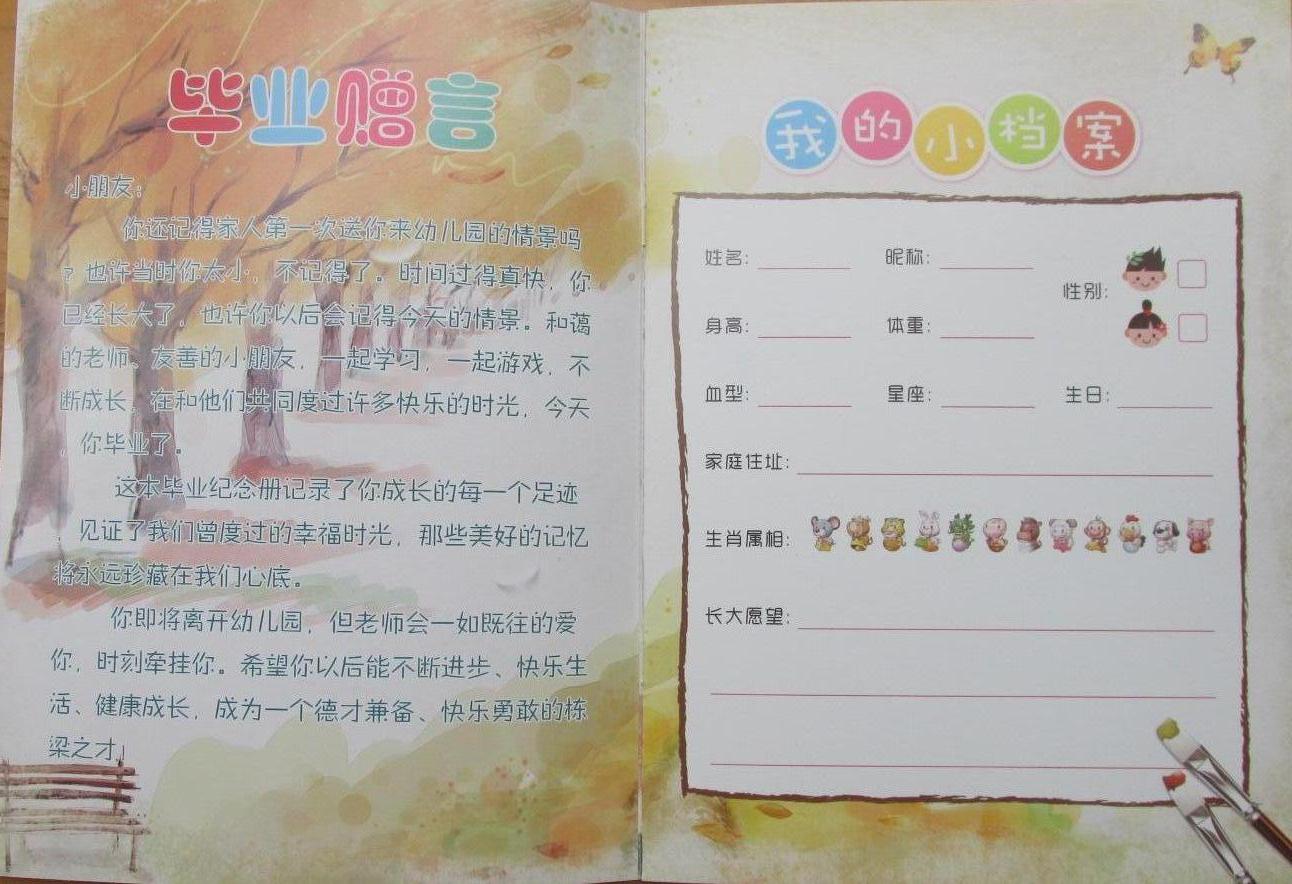 毕业赠言
小朋友：
你还记得家人第一次送你来幼儿园的情景吗
？也许当时你太小，不记得了。时间过得真快，你
已经长大了，也许你以后会记得今天的情景。和蔼
的老师、友善的小朋友，一起学习，一起游戏，不
断成长，在和他们共同度过许多快乐的时光，今天
，你毕业了。
这本毕业纪念册记录了你成长的每一个足迹
，见证了我们曾度过的幸福时光，那些美好的记忆
将永远珍藏在我们心底。
你即将离开幼儿园，但老师会一如既往的爱
你，时刻牵挂你。希望你以后能不断进步、快乐生
活、健康成长，成为一个德才兼备、快乐勇敢的栋
梁之才！
我的小档案
姓名：
昵称：
性别：
身高：
体重：
血型：
星座：
生日：
家庭住址：
生肖属相：
长大愿望：